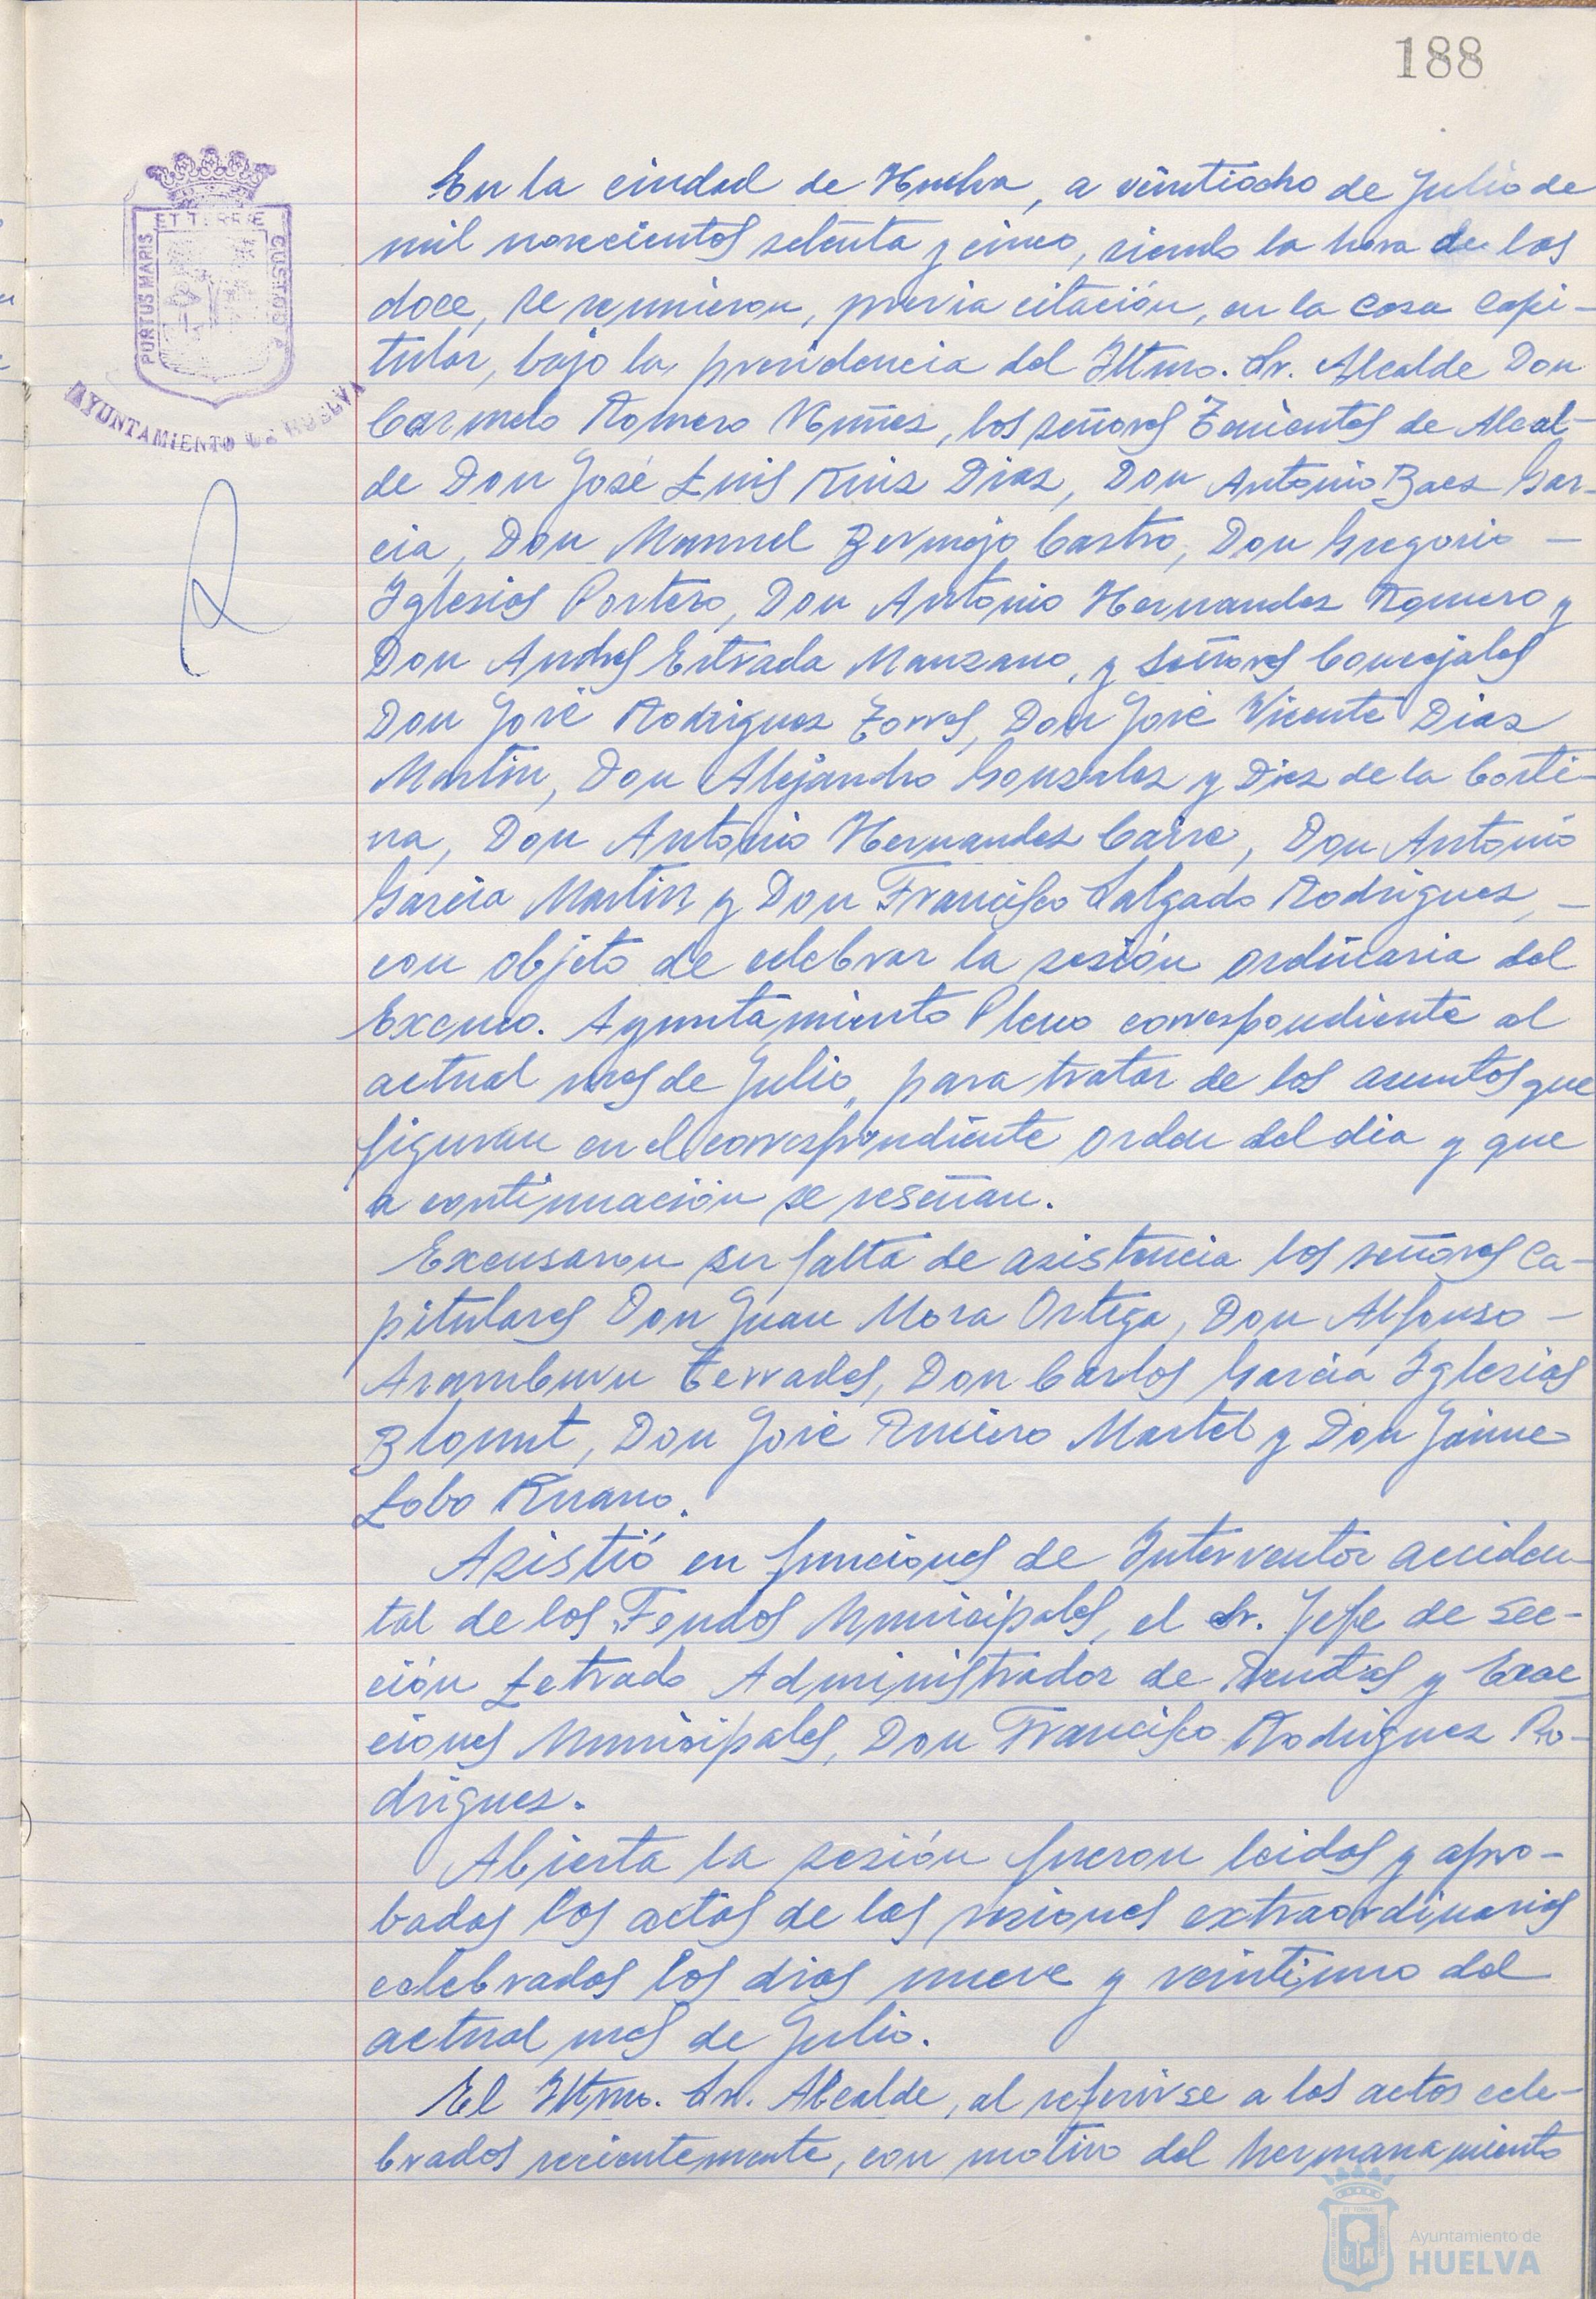 188
PORTUS MARIS ET TERRÆ CUSTODIA
AYUNTAMIENTO DE HUELVA
En la ciudad de Huelva, a veintiocho de Julio de
mil novecientos setenta y cinco, siendo la hora de las
doce, se reunieron, previa citación, en la Casa Capi-
tular, bajo la presidencia del Iltmo. Sr. Alcalde Don
Carmelo Romero Núñez, los señores Tenientes de Alcal-
de Don José Luis Ruiz Diaz, Don Antonio Baez Gar-
cia, Don Manuel Bermejo Castro, Don Gregorio —
Iglesias Portero, Don Antonio Hernandez Romero y
Don Andres Estrada Manzano, y señores Concejales
Don José Rodriguez Torres, Don José Vicente Diaz
Martin, Don Alejandro Gonzalez y Diez de la Corti-
na, Don Antonio Hernandez Cairo, Don Antonio
Garcia Martin y Don Francisco Salgado Rodriguez, —
con objeto de celebrar la sesión ordinaria del
Excmo. Ayuntamiento Pleno correspondiente al
actual mes de Julio, para tratar de los asuntos que
figuran en el correspondiente orden del dia y que
a continuación se reseñan.
Excusaron su falta de asistencia los señores Ca-
pitulares Don Juan Mora Ortega, Don Alfonso —
Aramburu Terrades, Don Carlos Garcia Iglesias
Blount, Don José Ruciero Martel y Don Jaime
Lobo Ruano.
Asistió en funciones de Interventor acciden-
tal de los Fondos Municipales, el Sr. Jefe de Sec-
ción Letrado Administrador de Rentas y Exac
ciones Municipales, Don Francisco Rodriguez Ro-
driguez.
Abierta la sesión fueron leidas y apro-
badas las actas de las sesiones extraordinarias
celebradas los dias nueve y veintiuno del
actual mes de Julio.
El Iltmo. Sr. Alcalde, al referirse a los actos cele-
brados recientemente, con motivo del hermanamiento
Ayuntamiento de
HUELVA